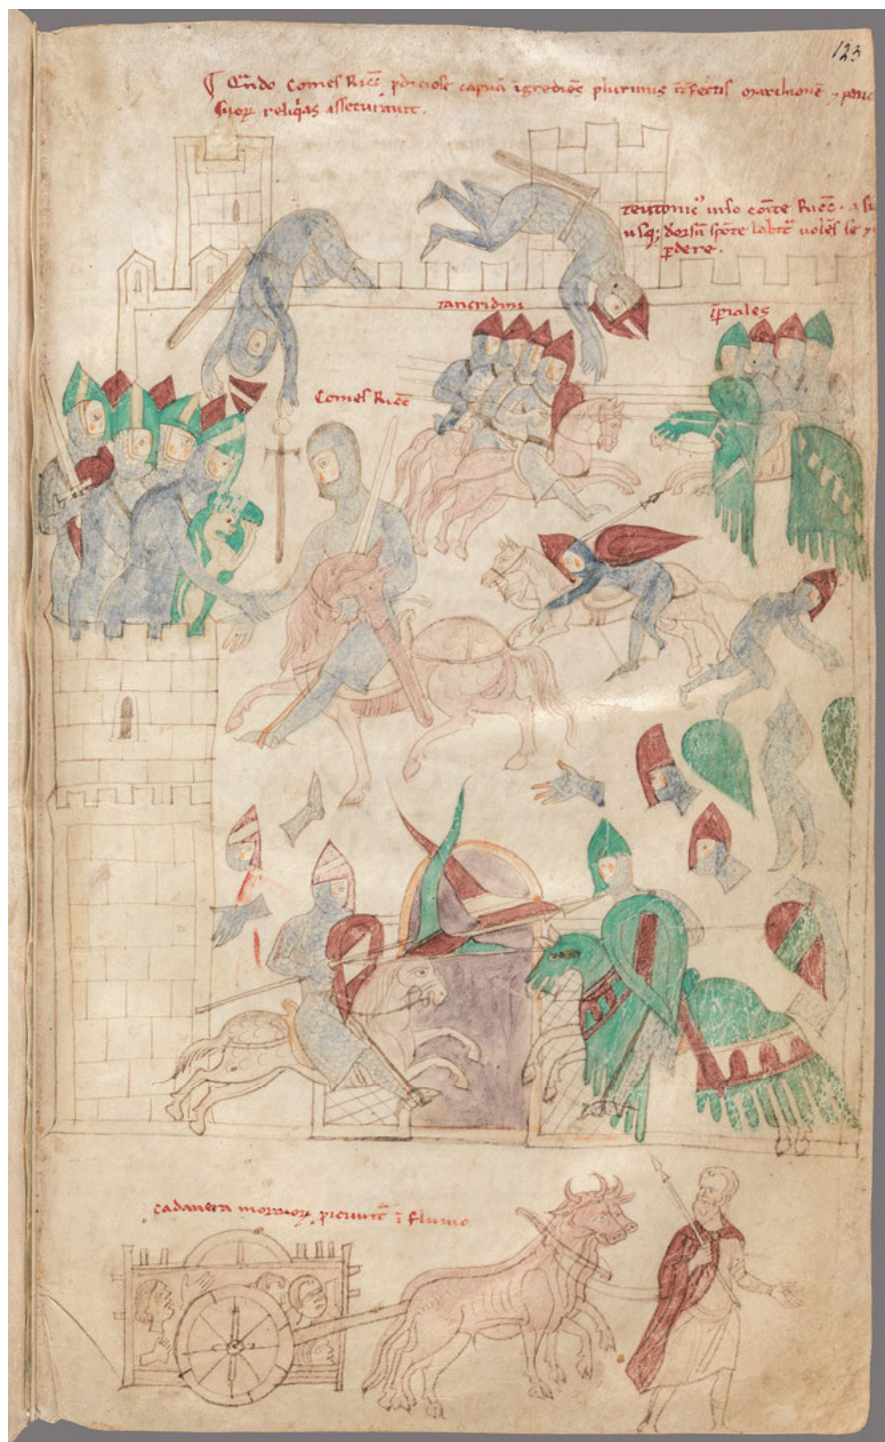 123
¶ Qn̄do Comes Ricc̄ p̄diciose capuā īgrediēs plurimis īt̄fectis marchionē ⁊
suoꝝ reliq̄as assecurauit.
teutonic᾽ uiso cōite Ricc̄. a
usq; dorsū spōte labit᷑ uolēs se
ꝑdere.
tancridini
īꝑiales
Comes Ricc̄
cadauera mortuoꝝ ꝓiciunt᷑ ī flumō